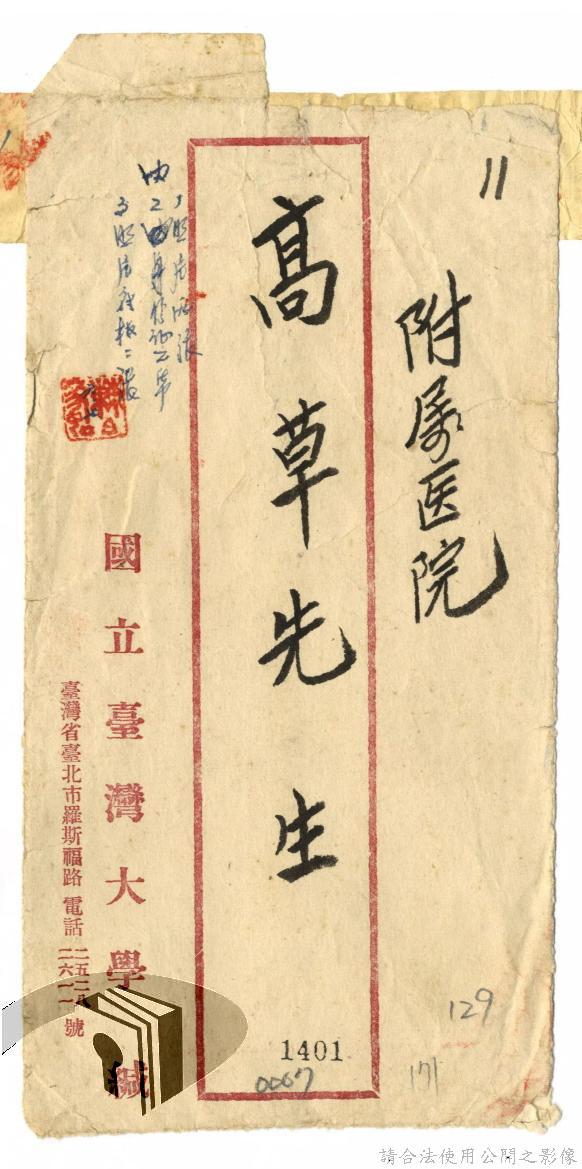 11
附属医院
高草先生
內
1照片 張
2 身份證 
3照片底板二張
國立臺灣大學緘
臺灣省臺北市羅斯福路 電話 二五二八 二六一一 號
1401
0067
129
171
請合法使用公開之影像